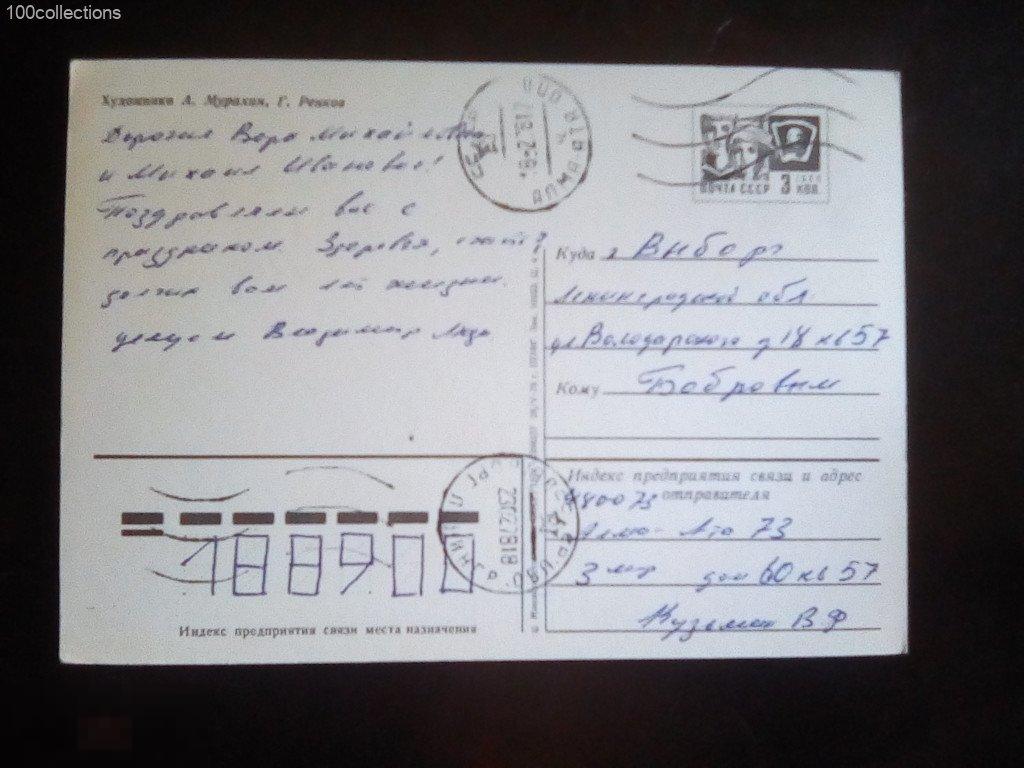 100collections
Художники А. Мурахин, Г. Ренков
Дорогия Вера Михайловна
и Михаил Иванович!
Поздравляем вас с
праздником Здоровья, счастья
долгих вам лет жизни.
Владимир Лида
АЛМА-АТА
ПОЧТА СССР 3 КОП.
Куда г Выборг
Ленинградской обл.
ул Володарского д 18 кв 57
Кому Бобровым
Индекс предприятия связи и адрес
отправителя
480073
Алма-Ата 73
3 мкр дом 60 кв 57
Кузьмин В Ф
188900
23027818
Индекс предприятия связи места назначения